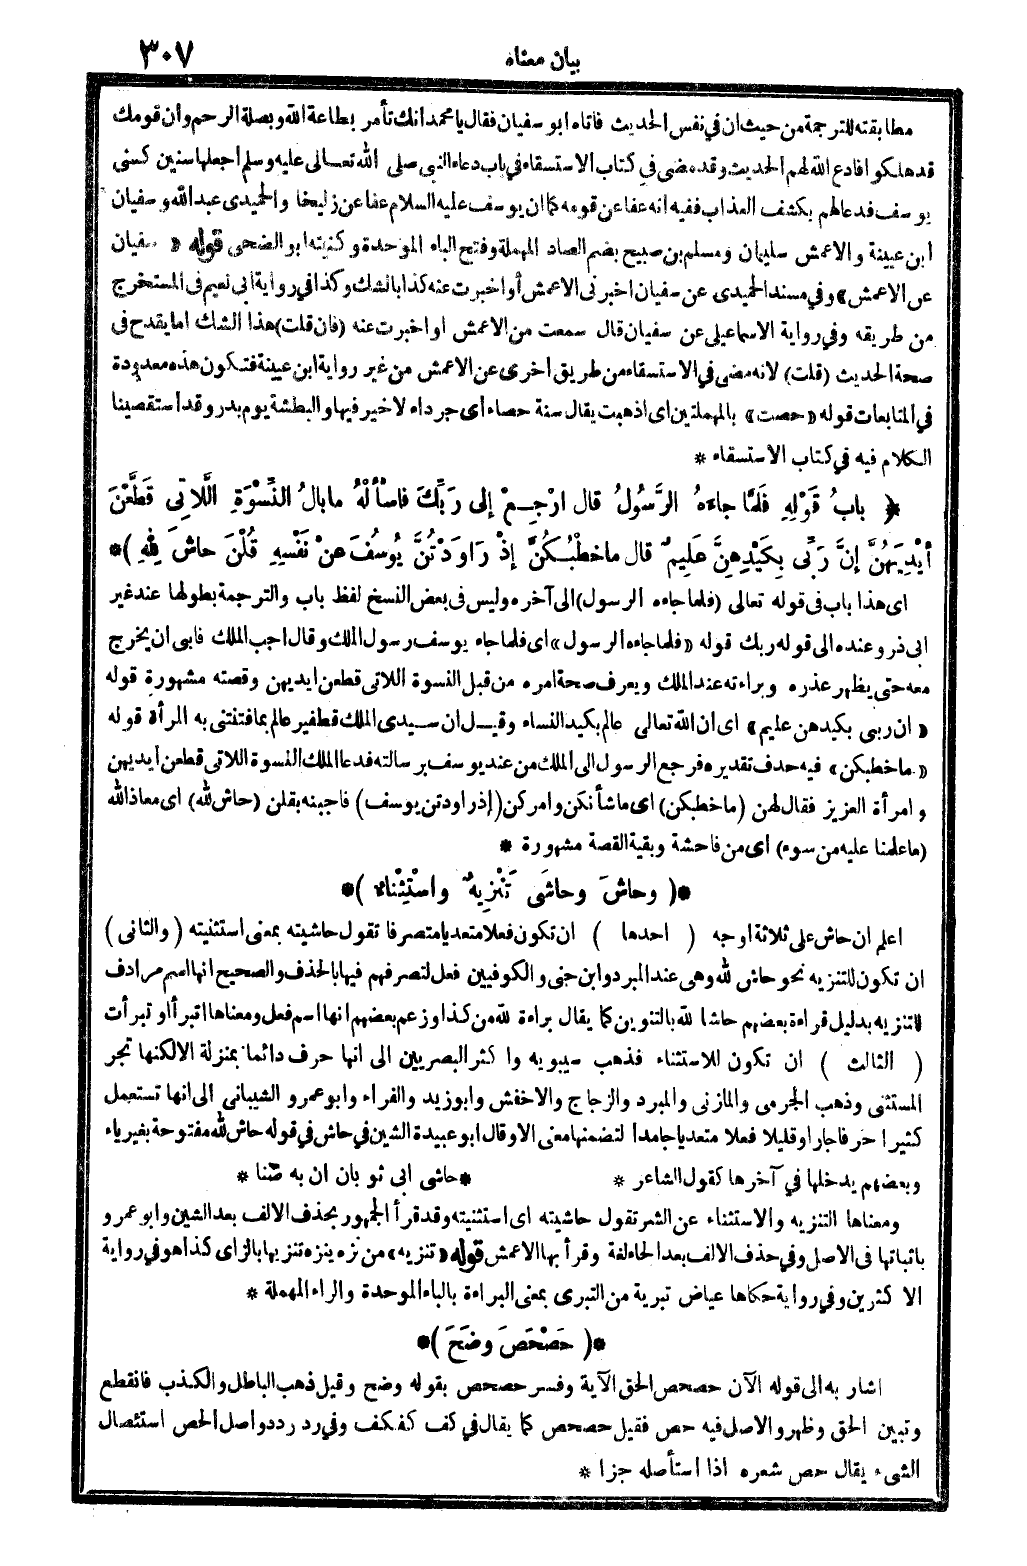 بيان معناه
٣٠٧
مطابقته للترجمة من حيث ان في نفس الحديث فاتاه ابو سفيان فقال يا محمد انك تأمر بطاعة الله وبصلة الرحم وان قومك
قد هلكوا فادع الله لهم الحديث وقد مضى في كتاب الاستسقاء في باب دعاء النبي صلى الله تعالى عليه وسلم اجعلها سنين كسنى
يوسف فدعا لهم بكشف العذاب ففيه انه عفا عن قومه كما ان يوسف عليه السلام عفا عن زليخا والحميدى عبد الله وسفيان
ابن عيينة والاعمش سليمان ومسلم بن صبيح بضم الصاد المهملة وفتح الباء الموحدة وكنيته ابو الضحى قوله «سفيان
عن الاعمش» وفي مسند الحميدى عن سفيان اخبرنى الاعمش أو اخبرت عنه كذا بالشك وكذا في رواية ابى نعيم فى المستخرج
من طريقه وفي رواية الاسماعيلى عن سفيان قال سمعت من الاعمش او اخبرت عنه (فان قلت) هذا الشك اما يقدح فى
صحة الحديث (قلت) لانه مضى في الاستسقاء من طريق اخرى عن الاعمش من غير رواية ابن عيينة فتكون هذه معدودة
في المتابعات قوله «حصت» بالمهملتين اى اذهبت يقال سنة حصاء أى جرداء لا خير فيها والبطشة يوم بدر وقد استقصينا
الكلام فيه في كتاب الاستسقاء *
﴿ بابُ قَوْلِهِ فَلَمَّا جاءَهُ الرَّسُولُ قال ارْجِعْ إلى رَبِّكَ فاسْأَلْهُ ما بالُ النِّسْوَةِ اللَّاتِى قَطَّعْنَ
أيْدِيَهُنَّ إنَّ رَبِّى بِكَيْدِهِنَّ عَلِيمٌ قال ما خَطْبُكُنَّ إذْ رَاوَدْتُنَّ يُوسُفَ عنْ نَفْسِهِ قُلْنَ حاشَ لِلّٰهِ ) *
اى هذا باب فى قوله تعالى (فلما جاءه الرسول) الى آخره وليس فى بعض النسخ لفظ باب والترجمة بطولها عند غير
ابى ذر وعنده الى قوله ربك قوله «فلما جاءه الرسول» اى فلما جاء يوسف رسول الملك وقال اجب الملك فابى ان يخرج
معه حتى يظهر عذره وبراءته عند الملك ويعرف صحة امره من قبل النسوة اللاتى قطعن ايديهن وقصته مشهورة قوله
«ان ربى بكيدهن عليم» اى ان الله تعالى عالم بكيد النساء وقيل ان سيدى الملك قطفير عالم بما فتنتنى به المرأة قوله
«ما خطبكن» فيه حذف تقديره فرجع الرسول الى الملك من عند يوسف برسالته فدعا الملك النسوة اللاتى قطعن ايديهن
وامرأة العزيز فقال لهن (ما خطبكن) اى ما شأنكن وامركن (إذ راودتن يوسف) فاجبنه بقلن (حاش لله) اى معاذ الله
(ما علمنا عليه من سوء) اى من فاحشة وبقية القصة مشهورة *
*( وحاشَ وحاشَى تَنْزِيهٌ واسْتِثْناءٌ )*
اعلم ان حاش على ثلاثة اوجه ( احدها ) ان تكون فعلا متعديا متصرفا تقول حاشيته بمعنى استثنيته (والثانى)
ان تكون للتنزيه نحو حاش لله وهى عند المبرد وابن جنى والكوفيين فعل لتصرفهم فيها بالحذف والصحيح انها اسم مرادف
للتنزيه بدليل قراءة بعضهم حاشا لله بالتنوين كما يقال براءة لله من كذا وزعم بعضهم انها اسم فعل ومعناها اتبرأ او تبرأت
( الثالث ) ان تكون للاستثناء فذهب سيبويه واكثر البصريين الى انها حرف دائما بمنزلة الا لكنها تجر
المستثنى وذهب الجرمى والمازنى والمبرد والزجاج والاخفش وابو زيد والفراء وابو عمرو الشيبانى الى انها تستعمل
كثيرا حرفا جارا وقليلا فعلا متعديا جامدا لتضمنها معنى الا وقال ابو عبيدة الشين في حاش في قوله حاش لله مفتوحة بغير ياء
وبعضهم يدخلها في آخرها كقول الشاعر * * حاشى ابى ثوبان ان به ضنا *
ومعناها التنزيه والاستثناء عن الشر تقول حاشيته اى استثنيته وقد قرأ الجمهور بحذف الالف بعد الشين وابو عمرو
باثباتها فى الاصل وفي حذف الالف بعد الحاء لغة وقرأ بها الاعمش قوله «تنزيه» من نزه ينزه تنزيها بالزاى كذا هو في رواية
الاكثرين وفي رواية حكاها عياض تبرية من التبرى بمعنى البراءة بالباء الموحدة والراء المهملة *
*( حَصْحَصَ وضَحَ )*
اشار به الى قوله الآن حصحص الحق الآية وفسر حصحص بقوله وضح وقيل ذهب الباطل والكذب فانقطع
وتبين الحق وظهر والاصل فيه حص فقيل حصحص كما يقال في كف كفكف وفي رد ردد واصل الحص استئصال
الشىء يقال حص شعره اذا استأصله جزا *